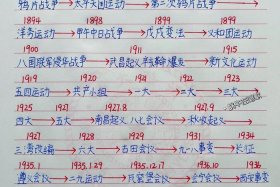 鸦片战争→太平天国运动→第二次鸦片战争→
1894 1894 1898 1899
洋务运动→甲午中日战争→戊戌变法→义和团运动
1900 1911 1915
八国联军侵华战争→武昌起义辛亥革命爆发→新文化运动
1919 1920 1921 1922 1923
五四运动→共产小组→一大→二大→三大→
1925 1927 1927.8 1927.9
四大→五大→南昌起义 八七会议→秋收起义→
1927 1928 1929 1931 1934
三湾改编→六大→古田会议→九一八事变→长征
1935.1 1935.1.29 1935.12.17 1936.10 1936
遵义会议→二九运动→瓦窑堡会议→会宁会议→西安事变